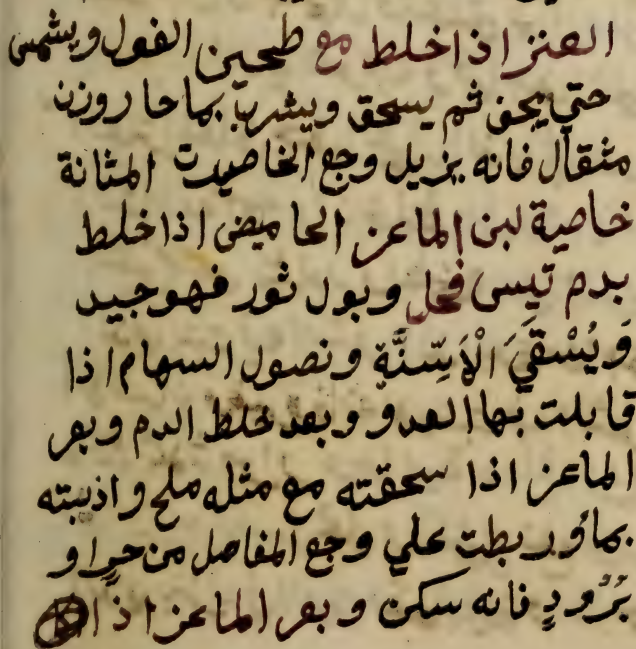 العنز اذا خلط مع طحين الفول ويشمس
حتي يجف ثم يسحق ويشرب بما حار وزن
مثقال فانه يزيل وجع الخاصيرت المثانة
خاصية لبن الماعز الحامیض اذا خلط
بدم تيس فحل وبول ثور فهو جيد
وَيُسْقَيَ الْاَسِنَّةِ ونصول السهام اذا
قابلت بها العدو وبعد خلط الدم وبعر
الماعز اذا سحقته مع مثله ملح واذبته
بماء وربطت علي وجع المفاصل من حرٍ او
بُرُودٍ فانه سكن وبعر الماعز اذا